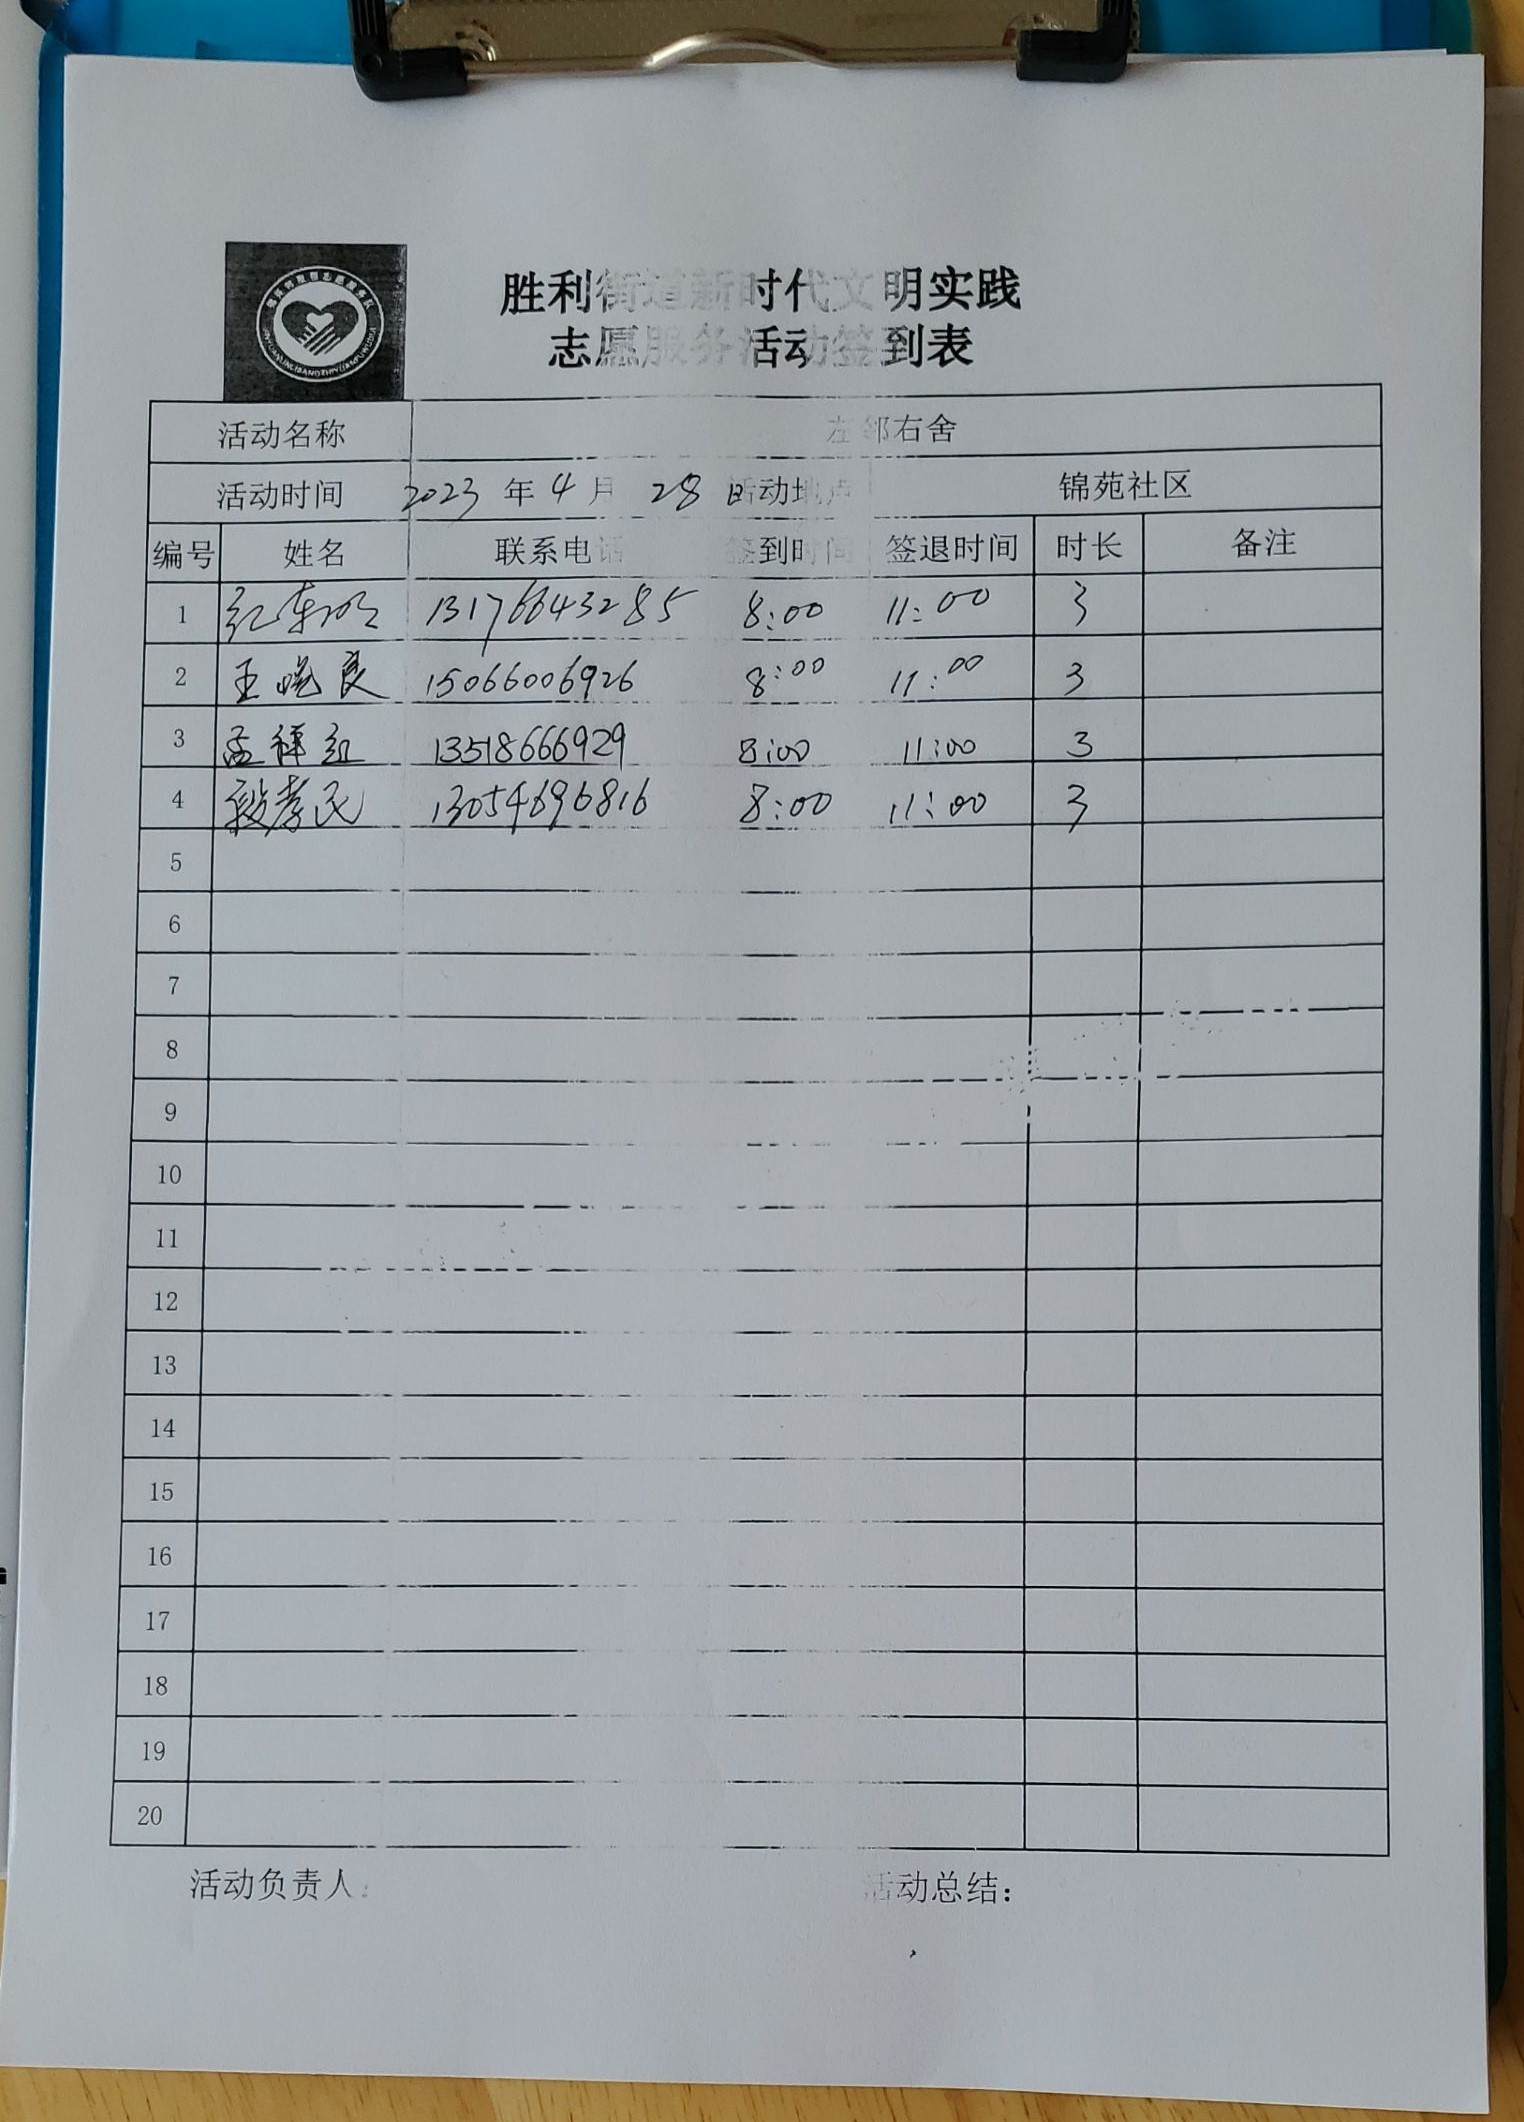 胜利街道新时代文明实践
志愿服务活动签到表
活动名称 左邻右舍
活动时间 2023 年 4 月 28 日 活动地点 锦苑社区
编号 姓名 联系电话 签到时间 签退时间 时长 备注
1 13176643285 8:00 11:00 3
2 王 良 15066006926 8:00 11:00 3
3 孟祥 13518666929 8:00 11:00 3
4 段孝民 13054696816 8:00 11:00 3
5
6
7
8
9
10
11
12
13
14
15
16
17
18
19
20
活动负责人: 活动总结: